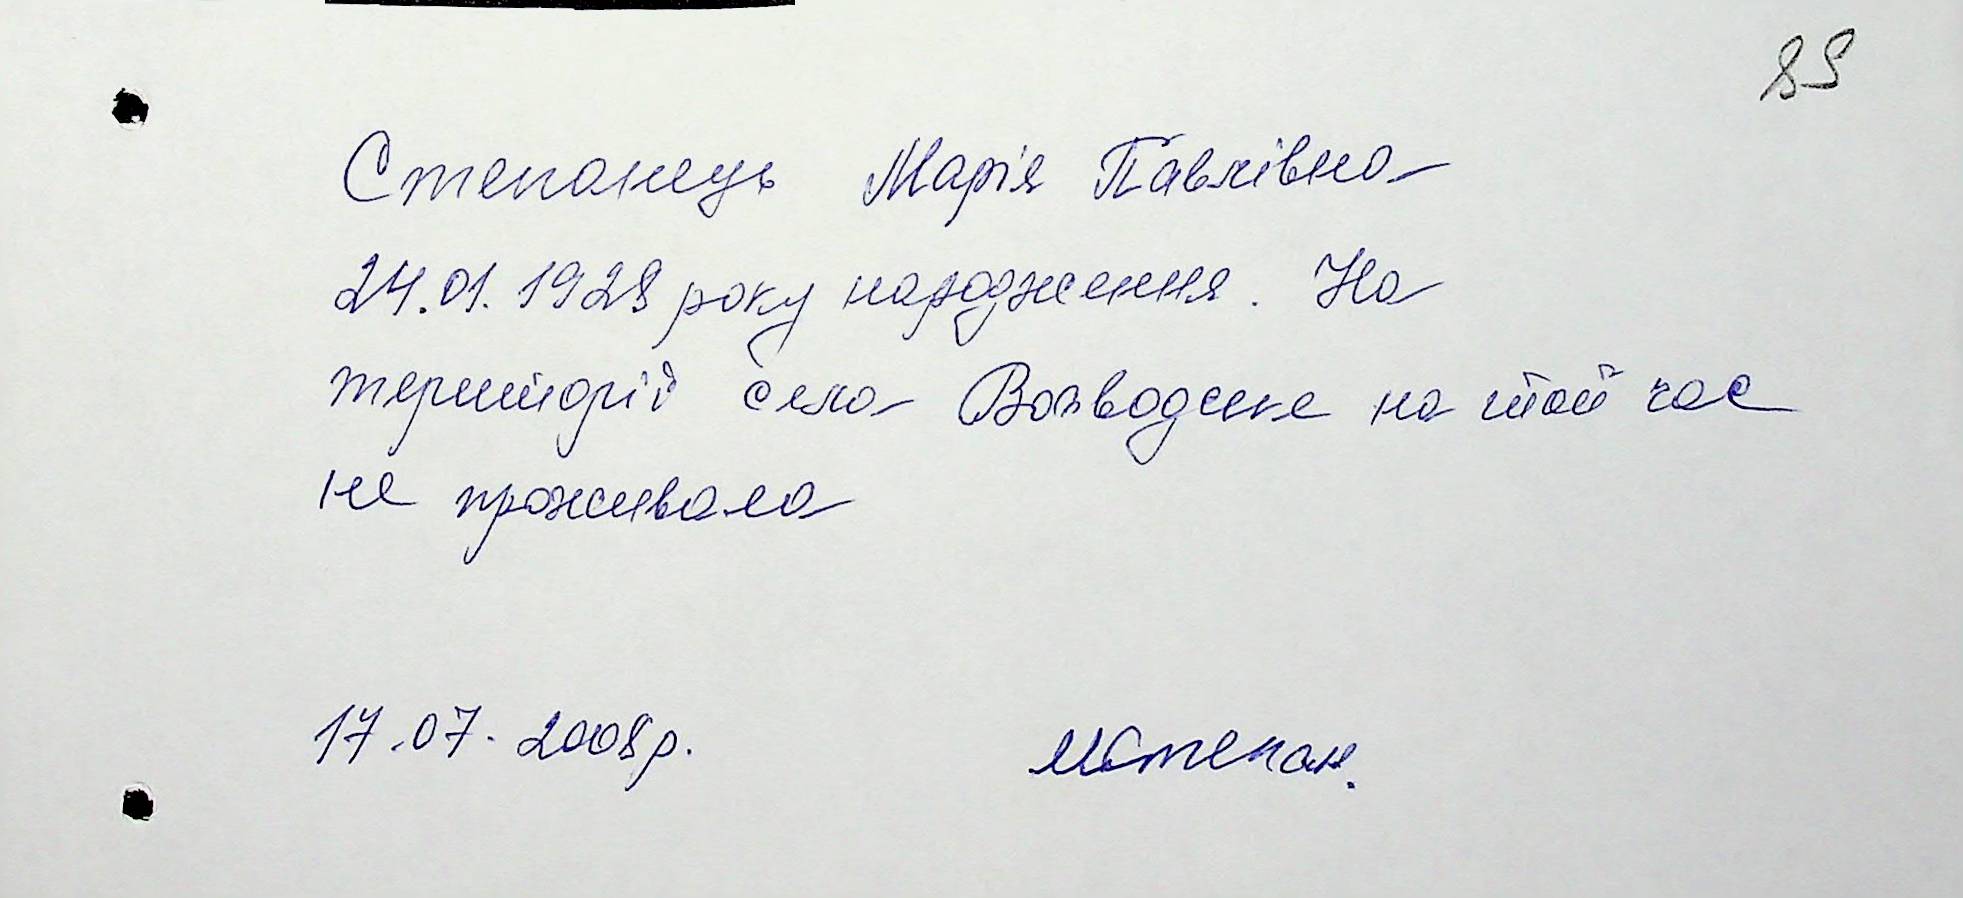 89
Степанець Марія Павлівна
24.01.1928 року народження. На
території села Воєводське на той час
не проживала
17.07.2008р. МСтепан.